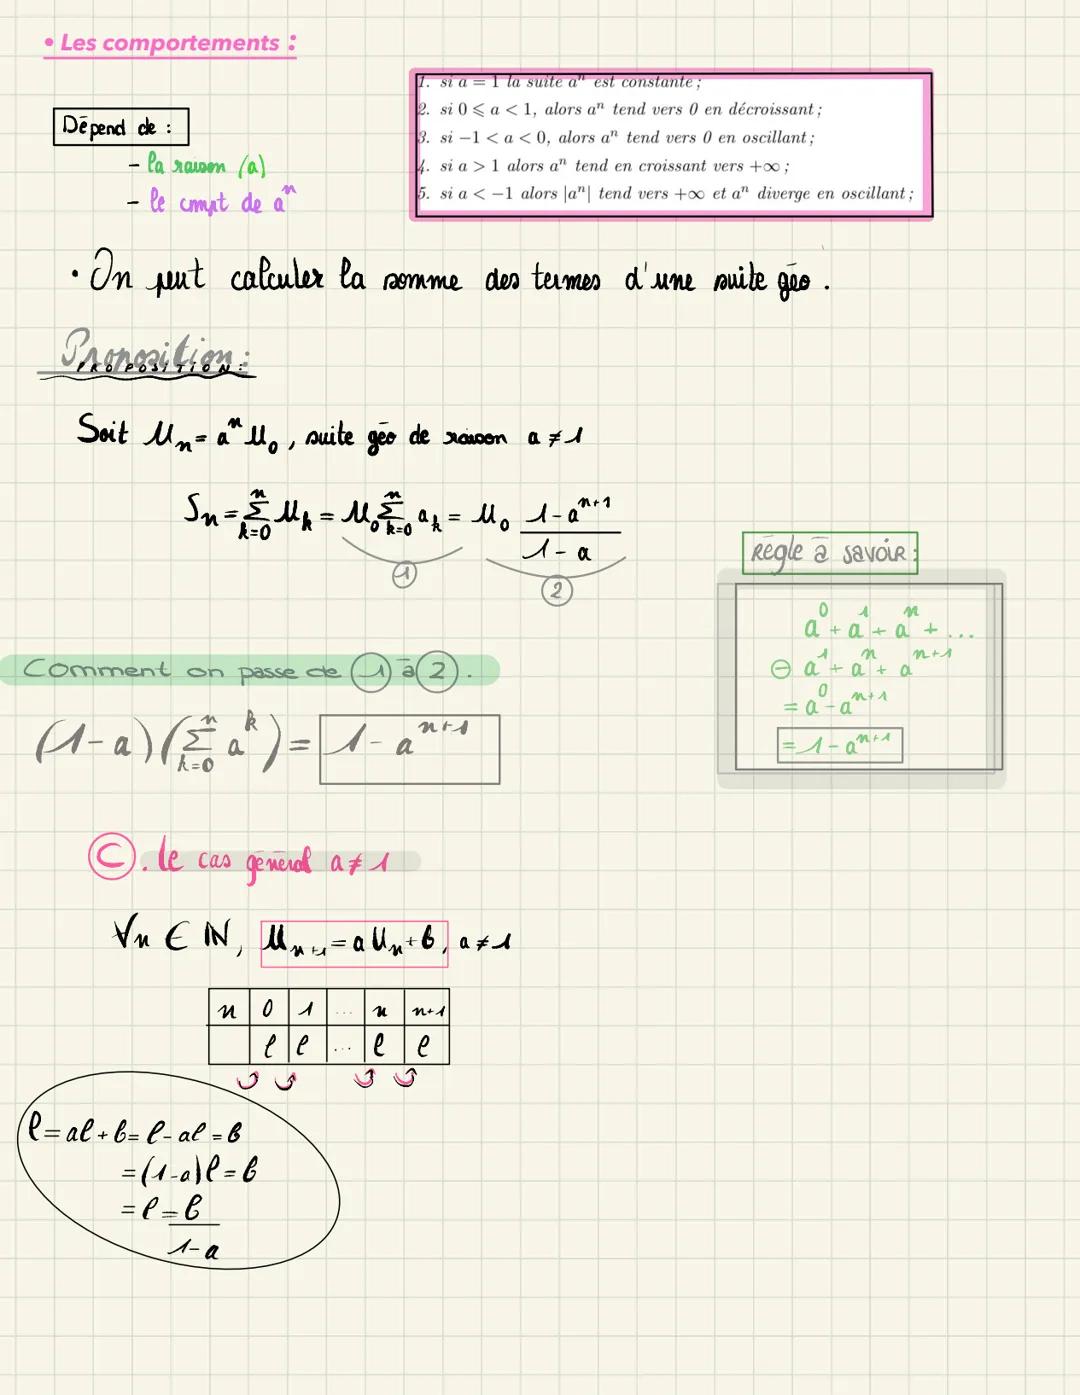 • Les comportements :
Dépend de :
- la raison (a)
- le cmpt de aⁿ
1. si a = 1 la suite aⁿ est constante ;
2. si 0 ⩽ a < 1, alors aⁿ tend vers 0 en décroissant ;
3. si −1 < a < 0, alors aⁿ tend vers 0 en oscillant ;
4. si a > 1 alors aⁿ tend en croissant vers +∞ ;
5. si a < −1 alors |aⁿ| tend vers +∞ et aⁿ diverge en oscillant ;
• On peut calculer la somme des termes d'une suite géo.
Proposition :
PROPOSITION :
Soit Uₙ = aⁿ U₀, suite géo de raison a ≠ 1
Sₙ = Σ_{k=0}^{n} U_k = U₀ Σ_{k=0}^{n} a_k = U₀ (1 - aⁿ⁺¹)/(1 - a)
① ②
Règle à savoir :
a⁰ + a¹ + aⁿ + ...
⊖ a¹ + aⁿ + aⁿ⁺¹
= a⁰ - aⁿ⁺¹
= 1 - aⁿ⁺¹
Comment on passe de ① à ②.
(1 - a)(Σ_{k=0}^{n} a^k) = 1 - aⁿ⁺¹
Ⓒ. le cas général a ≠ 1
∀n ∈ ℕ, Uₙ₊₁ = a Uₙ + b, a ≠ 1
n 0 1 ... n n+1
ℓ ℓ ... ℓ ℓ
ℓ = aℓ + b = ℓ - aℓ = b
= (1 - a)ℓ = b
= ℓ = b/(1 - a)